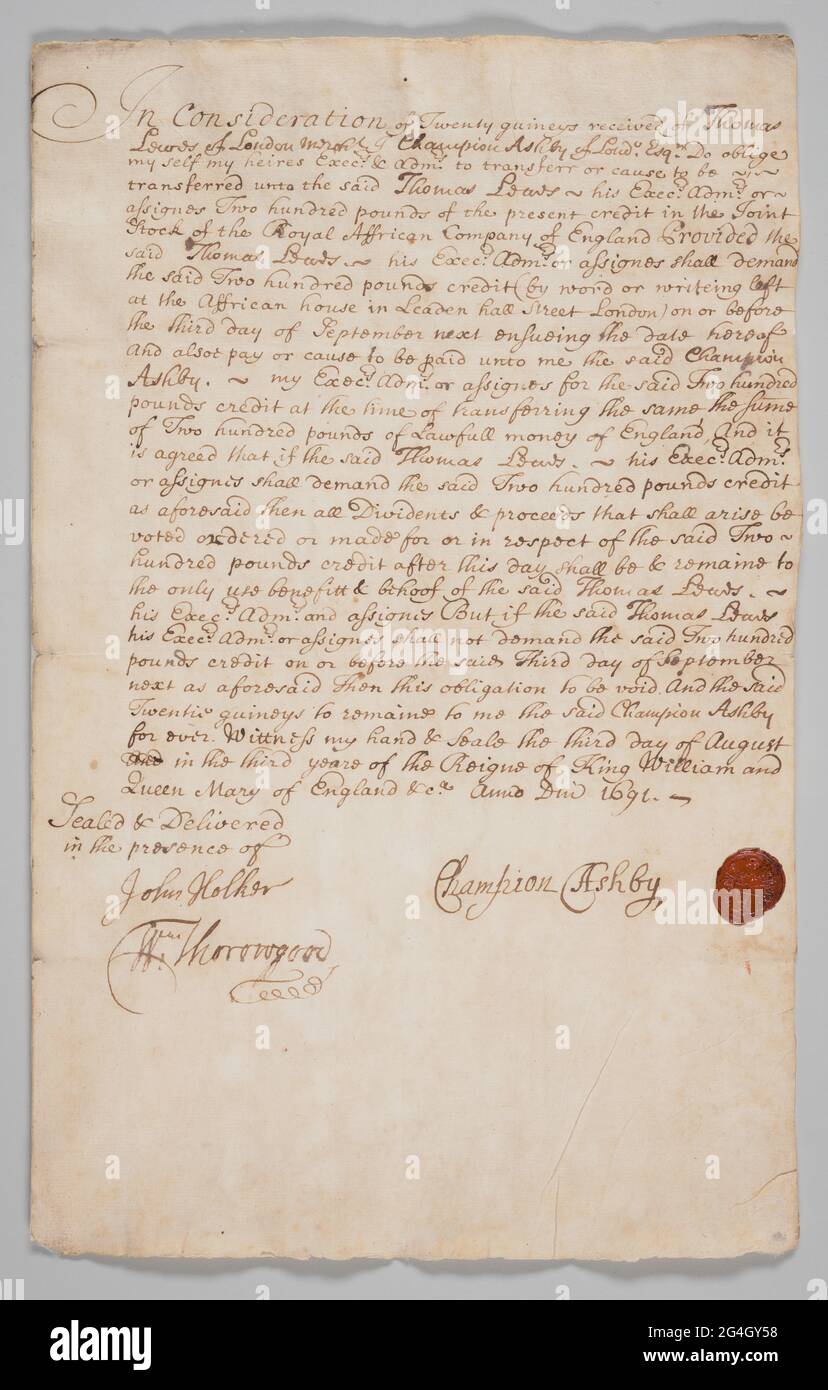 In Consideration of Twenty guineys received of Thomas
Lewes of London Merch.t I Champion Ashby of Lond.o Esq.r Do oblige
my self my heires Exec.rs & Adm.rs to transferr or cause to be ~
transferred unto the said Thomas Lewes ~ his Exec.rs Adm.rs or ~
assignes Two hundred pounds of the present credit in the Joint
Stock of the Royal Affrican Company of England Provided the
said Thomas Lewes ~ his Exec.rs Adm.rs or assignes shall demand
the said Two hundred pounds credit (by word or writeing left
at the Affrican house in Leaden hall Street London) on or before
the third day of September next ensueing the date hereof
And alsoe pay or cause to be paid unto me the said Champion
Ashby. ~ my Exec.rs Adm.rs or assignes for the said Two hundred
pounds credit at the time of transferring the same the sume
of Two hundred pounds of Lawfull money of England, And it
is agreed that if the said Thomas Lewes. ~ his Exec.rs Adm.rs
or assignes shall demand the said Two hundred pounds credit
as aforesaid then all Dividents & proceeds that shall arise be
voted ordered or made for or in respect of the said Two ~
hundred pounds credit after this day shall be & remaine to
the only use benefitt & behoof of the said Thomas Lewes. ~
his Exec.rs Adm.rs and assignes But if the said Thomas Lewes
his Exec.rs Adm.rs or assignes shall not demand the said Two hundred
pounds credit on or before the said Third day of September
next as aforesaid then this obligation to be void And the said
Twentie guineys to remaine to me the said Champion Ashby
for ever. Wittness my hand & Seale the third day of August
in the third yeare of the Reigne of King William and
Queen Mary of England &c.a Anno Dni 1691. ~
Sealed & Delivered
in the presence of
John Holker
Champion Ashby
W.m Thorowgood
alamy
Image ID: 2G4GY58
www.alamy.com